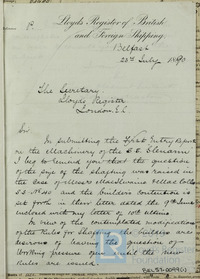 Lloyds Register of British
and Foreign Shipping,
Belfast
23rd July 1890
The Secretary
Lloyds Register
London E.C.
Sir
In submitting the First Entry Report
on the Machinery of the S.S.
I beg to remind you that the question
of the size of the shafting was raised in
the case of Messrs
S.S. and the builders contention is
set forth in their letter dated the 9th June
enclosed with my letter of 10th
In view of the contemplated modification
of the Rules for Shafting the builders are
desirous of leaving the question of
Working pressure open until the new
Rules are issued.
BEL37-0099(1)